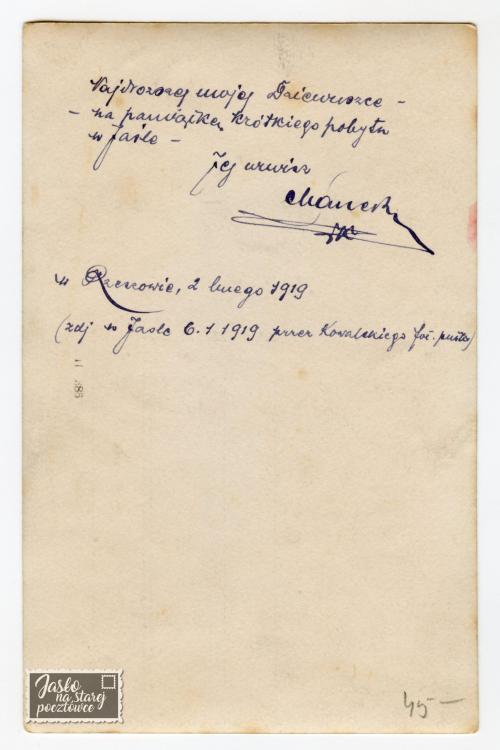 Najdroższej mojej Dziewuszce –
– na pamiątkę krótkiego pobytu
w Jaśle –
Jej urwisz
w Rzeszowie, 2 lutego 1919
(zdj w Jaśle 6.1 1919 przez Kowalskiego fot.
45 –
Jasło
na starej
pocztówce